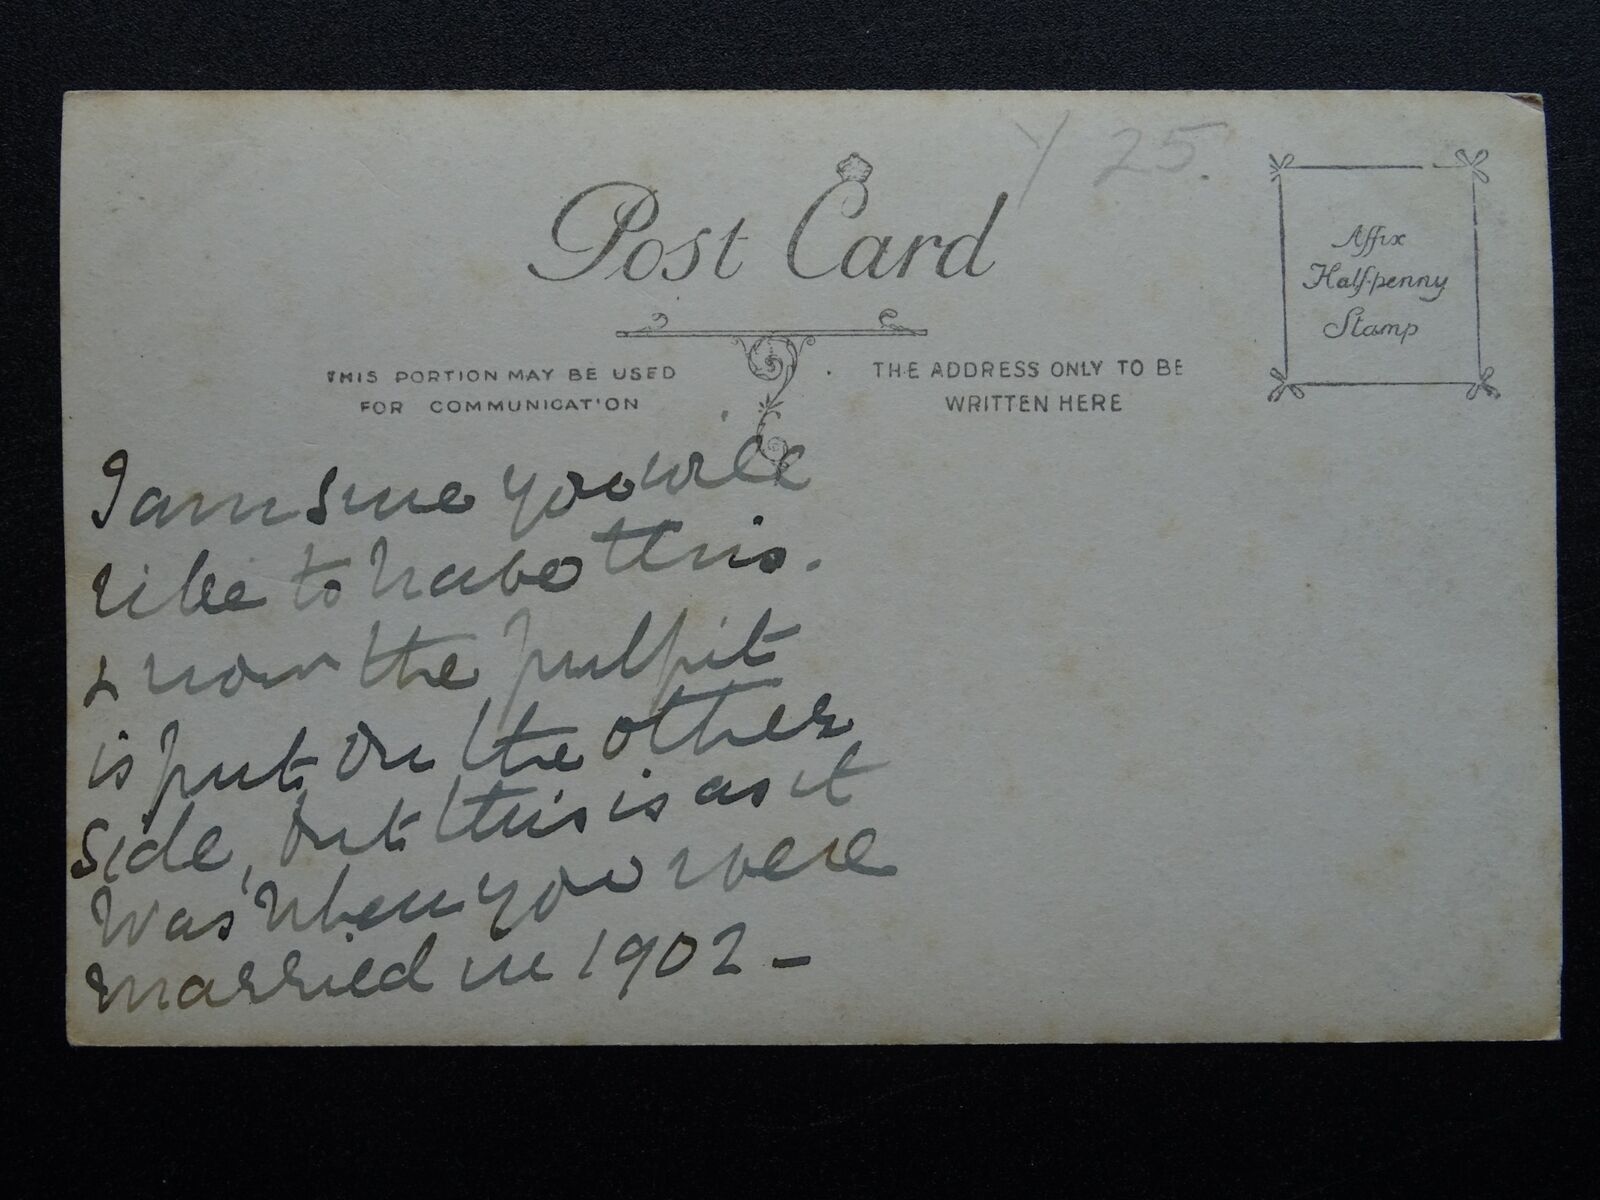 Y 25.
Post Card
Affix
Half-penny
Stamp
THIS PORTION MAY BE USED
FOR COMMUNICATION
THE ADDRESS ONLY TO BE
WRITTEN HERE
I am sure you will
like to have this.
& now the pulpit
is put on the other
side, but this is as it
was when you were
married in 1902 -